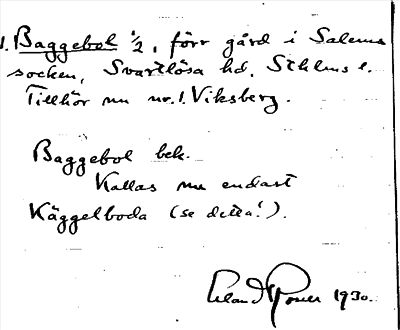 1. Baggebol ½, förr gård i Salems
socken, Svartlösa hd. Sthlms l.
Tillhör nu nr. 1. Viksberg.
Baggebol bek.
Kallas nu endast
Käggelboda (se detta!).
Erland Rosell 1930.